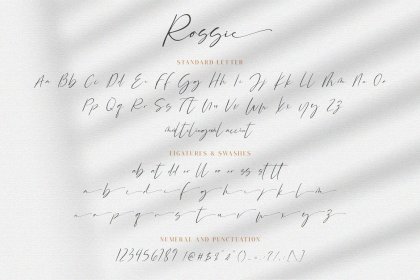 Rossie
STANDARD LETTER
Aa Bb Cc Dd Ee Ff Gg Hh Ii Jj Kk Ll Mm Nn Oo
Pp Qq Rr Ss Tt Uu Vv Ww Xx Yy Zz
multilingual accent
LIGATURES & SWASHES
ab at dd ee ll on or ss st tt
a b c d e f g h i j k l m
n o p q r s t u v w x y z
NUMERAL AND PUNCTUATION
123456789